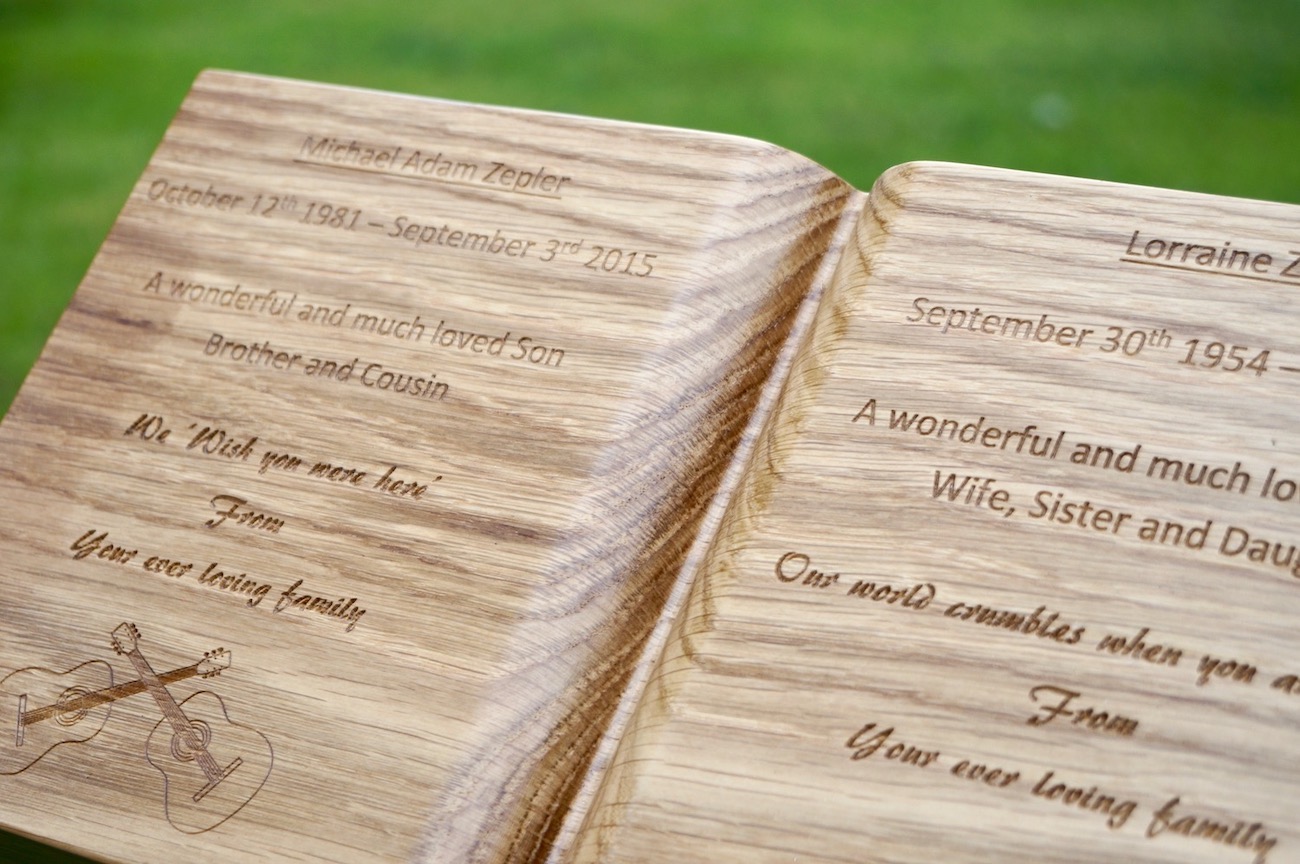 Michael Adam Zepler
October 12th 1981 – September 3rd 2015
A wonderful and much loved Son
Brother and Cousin
We 'Wish you were here'
From
Your ever loving family
Lorraine
September 30th 1954 –
A wonderful and much
Wife, Sister and
Our world crumbles when you
From
Your ever loving family